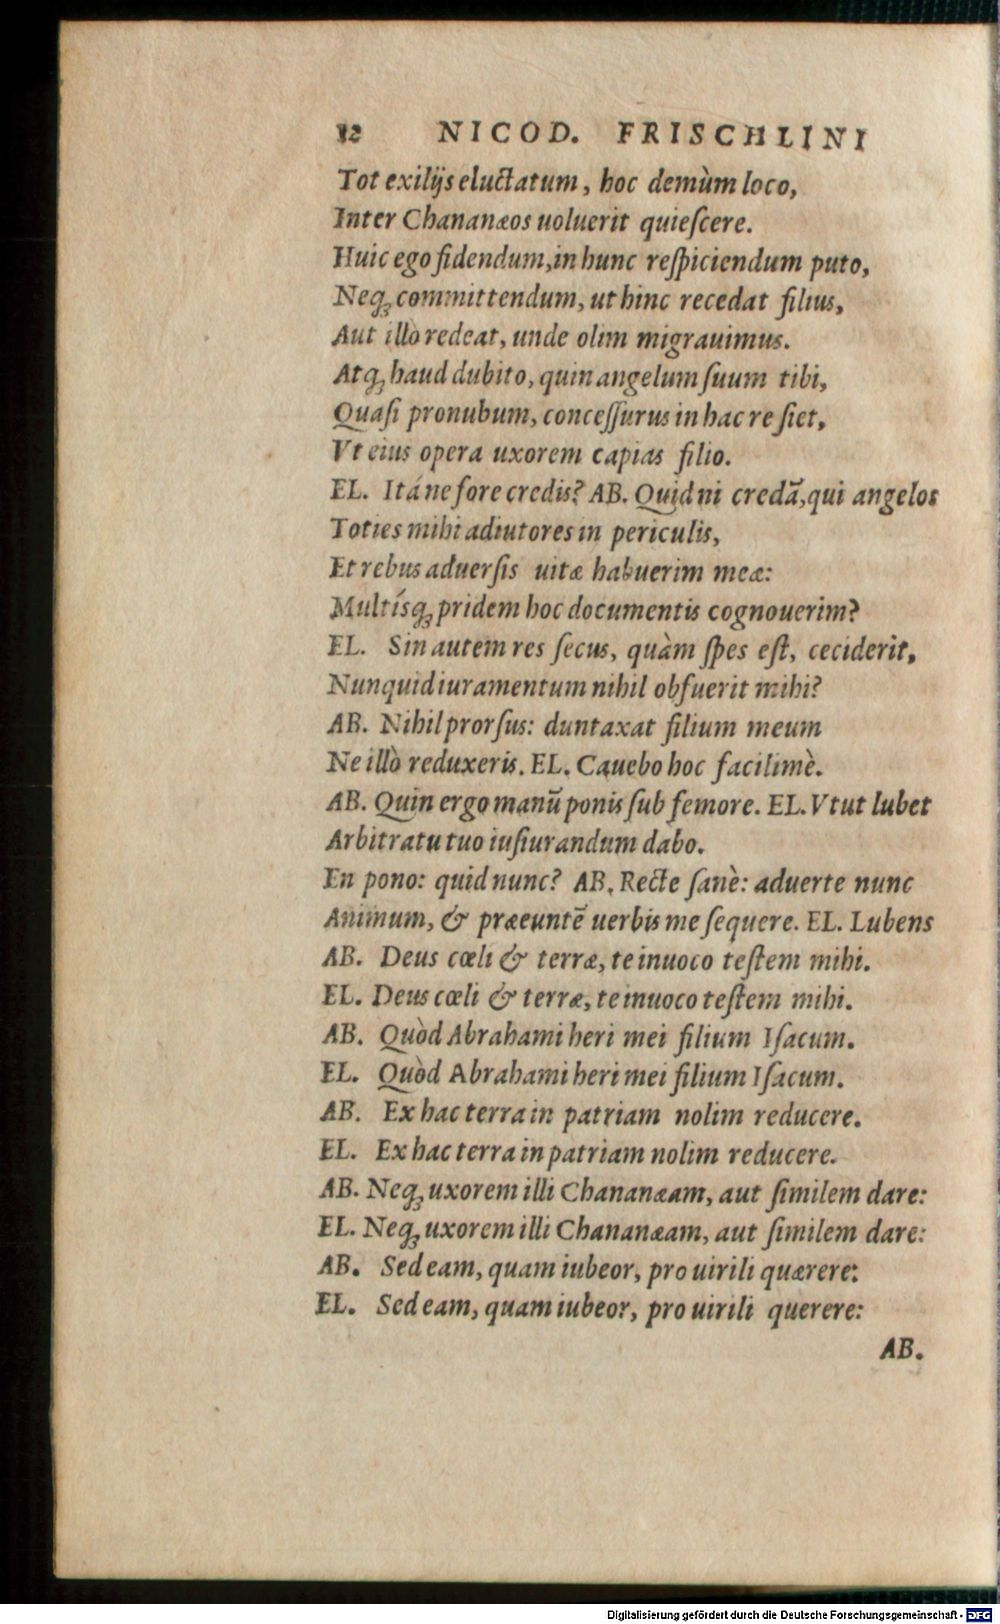 12 NICOD. FRISCHLINI
Tot exilijs eluctatum, hoc demùm loco,
Inter Chananæos uoluerit quieſcere.
Huic ego fidendum, in hunc reſpiciendum puto,
Neq́ꝫ committendum, ut hinc recedat filius,
Aut illò redeat, unde olim migrauimus.
Atqꝫ haud dubito, quin angelum ſuum tibi,
Quaſi pronubum, conceſſurus in hac re ſiet,
Vt eius opera uxorem capias filio.
EL. Itáne fore credis? AB. Quidni credã, qui angelos
Toties mihi adiutores in periculis,
Et rebus aduerſis uitæ habuerim meæ:
Multíſqꝫ pridem hoc documentis cognouerim?
EL. Sin autem res ſecus, quàm ſpes eſt, ceciderit,
Nunquid iuramentum nihil obfuerit mihi?
AB. Nihil prorſus: duntaxat filium meum
Ne illò reduxeris. EL. Cauebo hoc facilimè.
AB. Quin ergo manũ ponis ſub femore. EL. Vtut lubet
Arbitratu tuo iuſiurandum dabo.
En pono: quid nunc? AB. Recte ſanè: aduerte nunc
Animum, & præeuntẽ uerbis me ſequere. EL. Lubens
AB. Deus cœli & terræ, te inuoco teſtem mihi.
EL. Deus cœli & terræ, te inuoco teſtem mihi.
AB. Quòd Abrahami heri mei filium Iſacum.
EL. Quòd Abrahami heri mei filium Iſacum.
AB. Ex hac terra in patriam nolim reducere.
EL. Ex hac terra in patriam nolim reducere.
AB. Neqꝫ uxorem illi Chananæam, aut ſimilem dare:
EL. Neqꝫ uxorem illi Chananæam, aut ſimilem dare:
AB. Sed eam, quam iubeor, pro uirili quærere:
EL. Sed eam, quam iubeor, pro uirili querere:
AB.
Digitalisierung gefördert durch die Deutsche Forschungsgemeinschaft - DFG